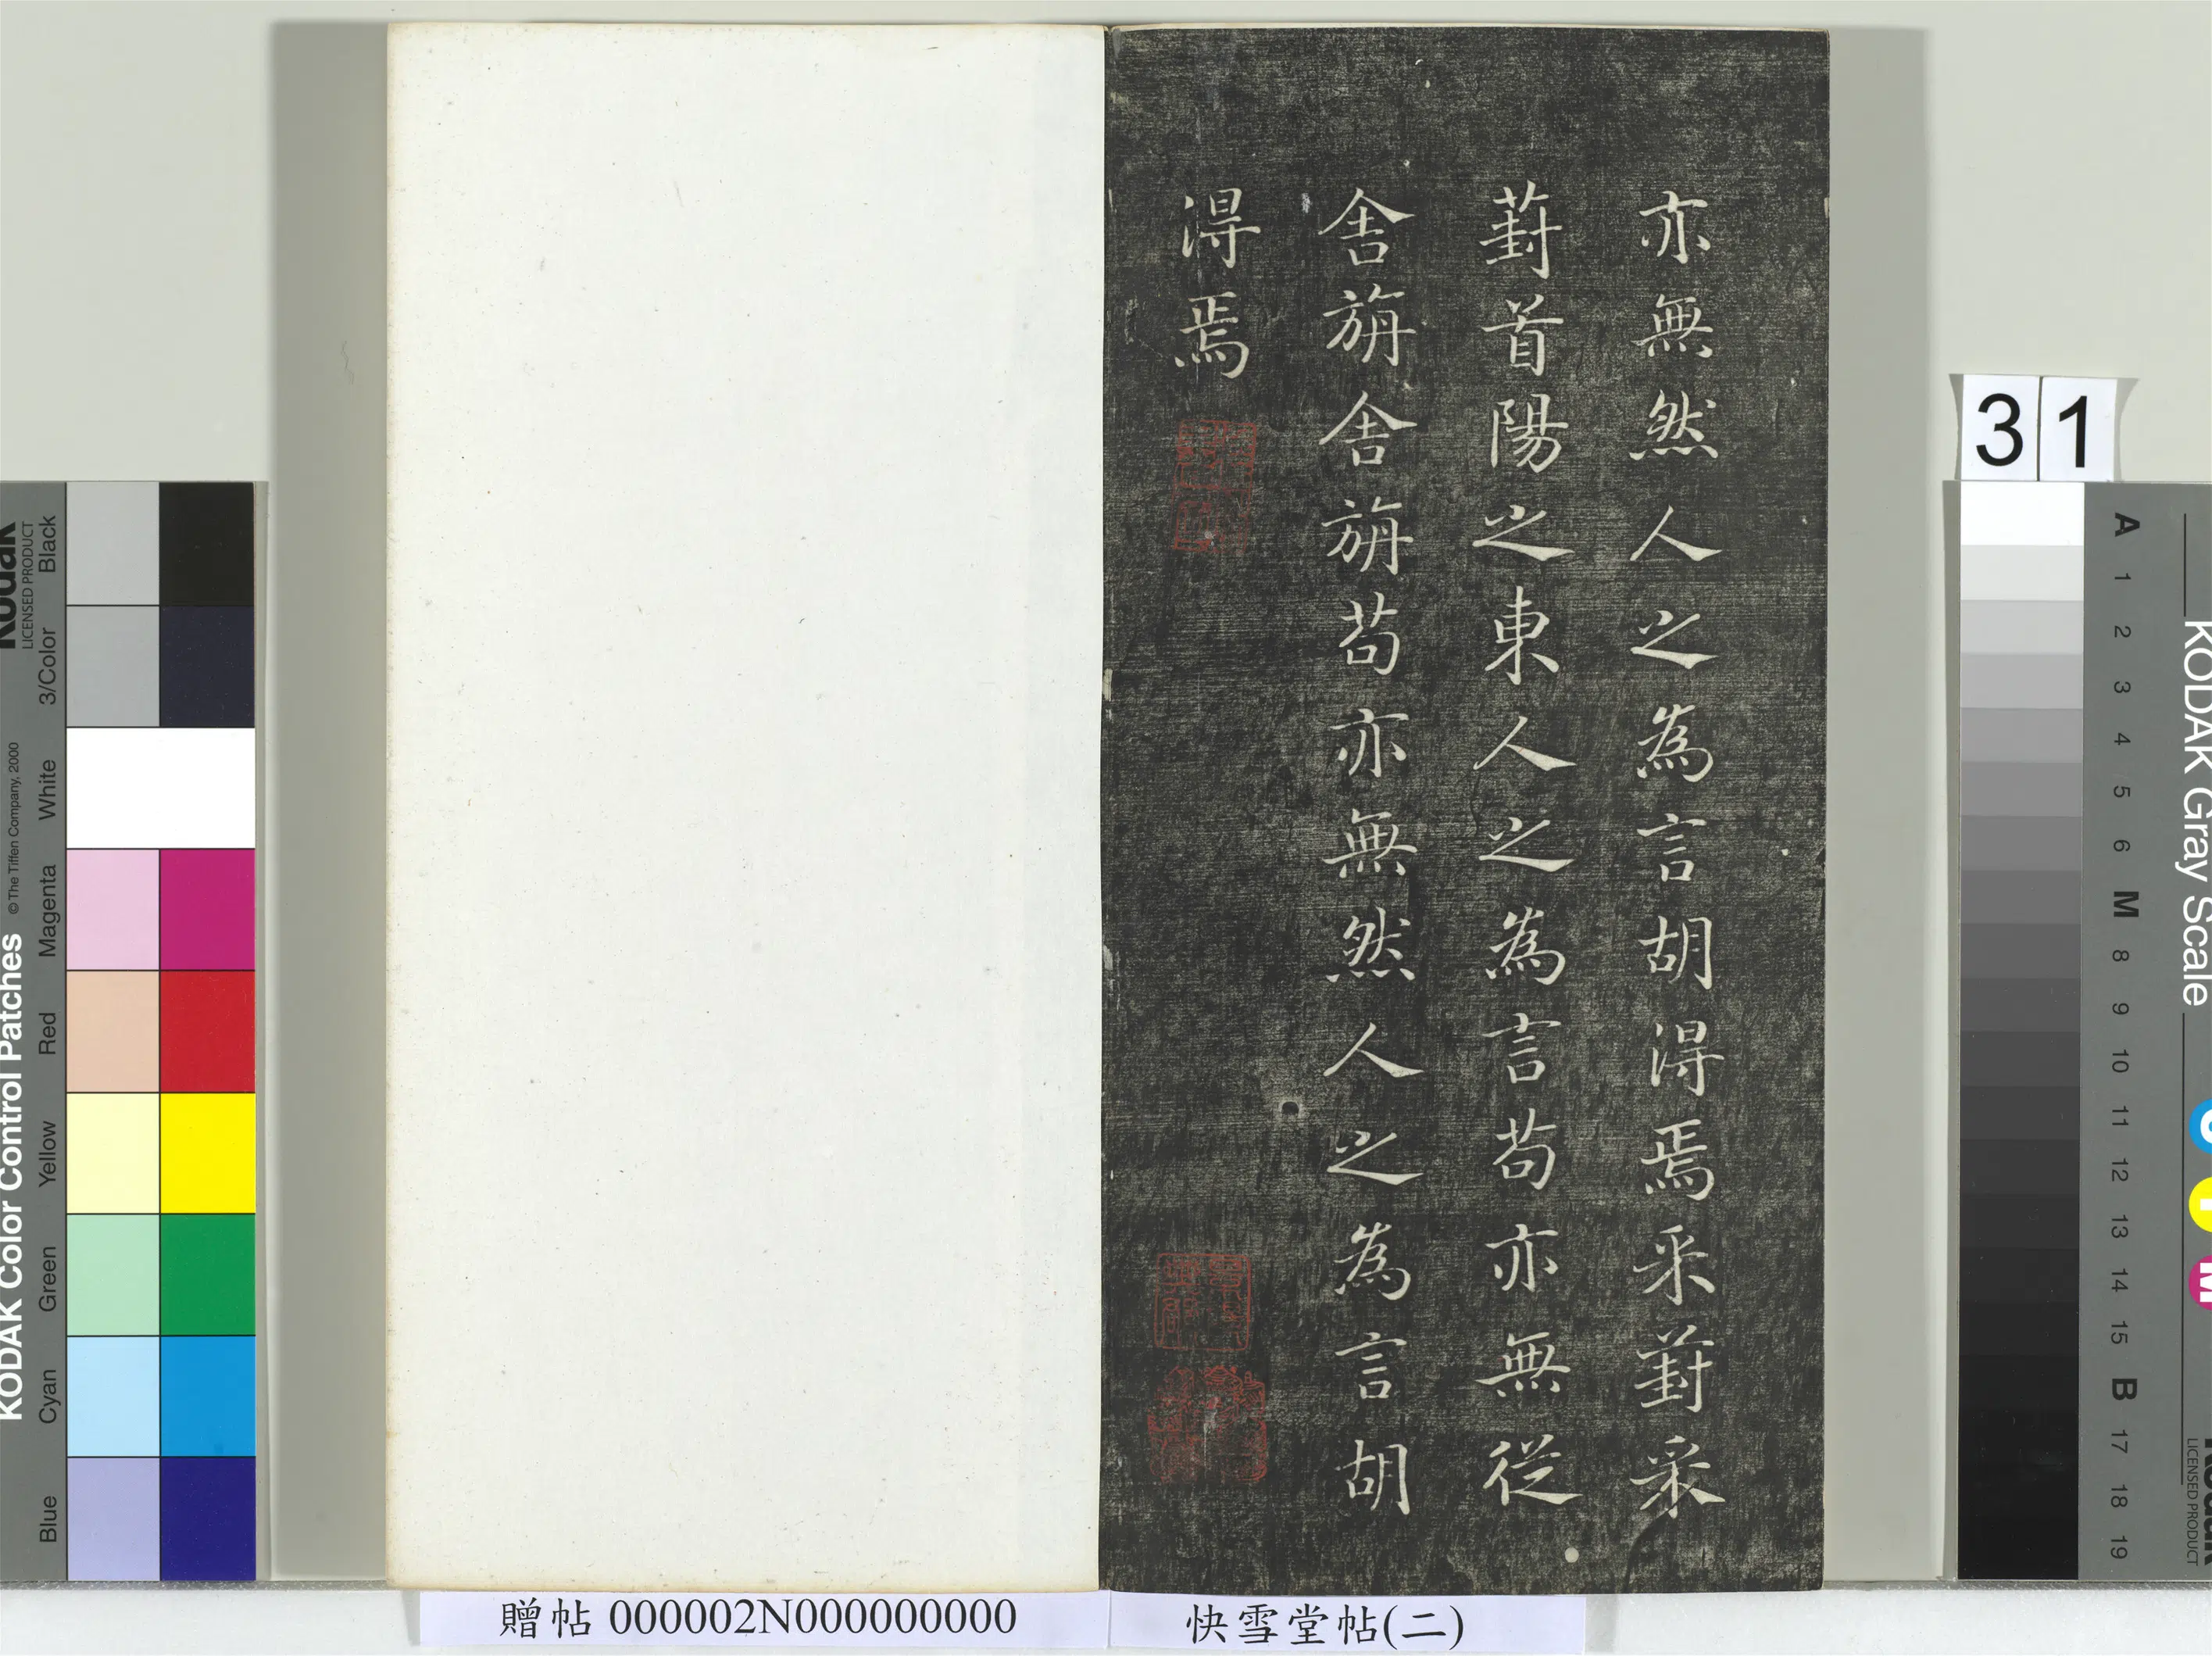 亦無然人之為言胡淂焉采葑采
葑首陽之東人之為言苟亦無從
舍旃舍旃苟亦無然人之為言胡
淂焉
31
贈帖 000002N000000000
快雪堂帖(二)
KODAK Color Control Patches
©The Tiffen Company, 2000
Kodak
LICENSED PRODUCT
Black
3/Color
White
Magenta
Red
Yellow
Green
Cyan
Blue
KODAK Gray Scale
A
1
2
3
4
5
6
M
8
9
10
11
12
13
14
15
B
17
18
19
C
Y
M
Kodak
LICENSED PRODUCT